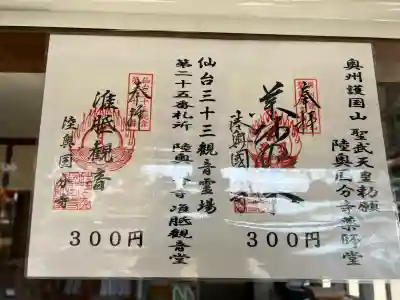 奥州護国山 聖武天皇勅願
陸奥国分寺薬師堂
奉拝
陸奥国分寺
300円
仙台三十三観音霊場
第二十五番札所 陸奥国分寺 准胝観音堂
奉拝
准胝観音
陸奥国分寺
300円